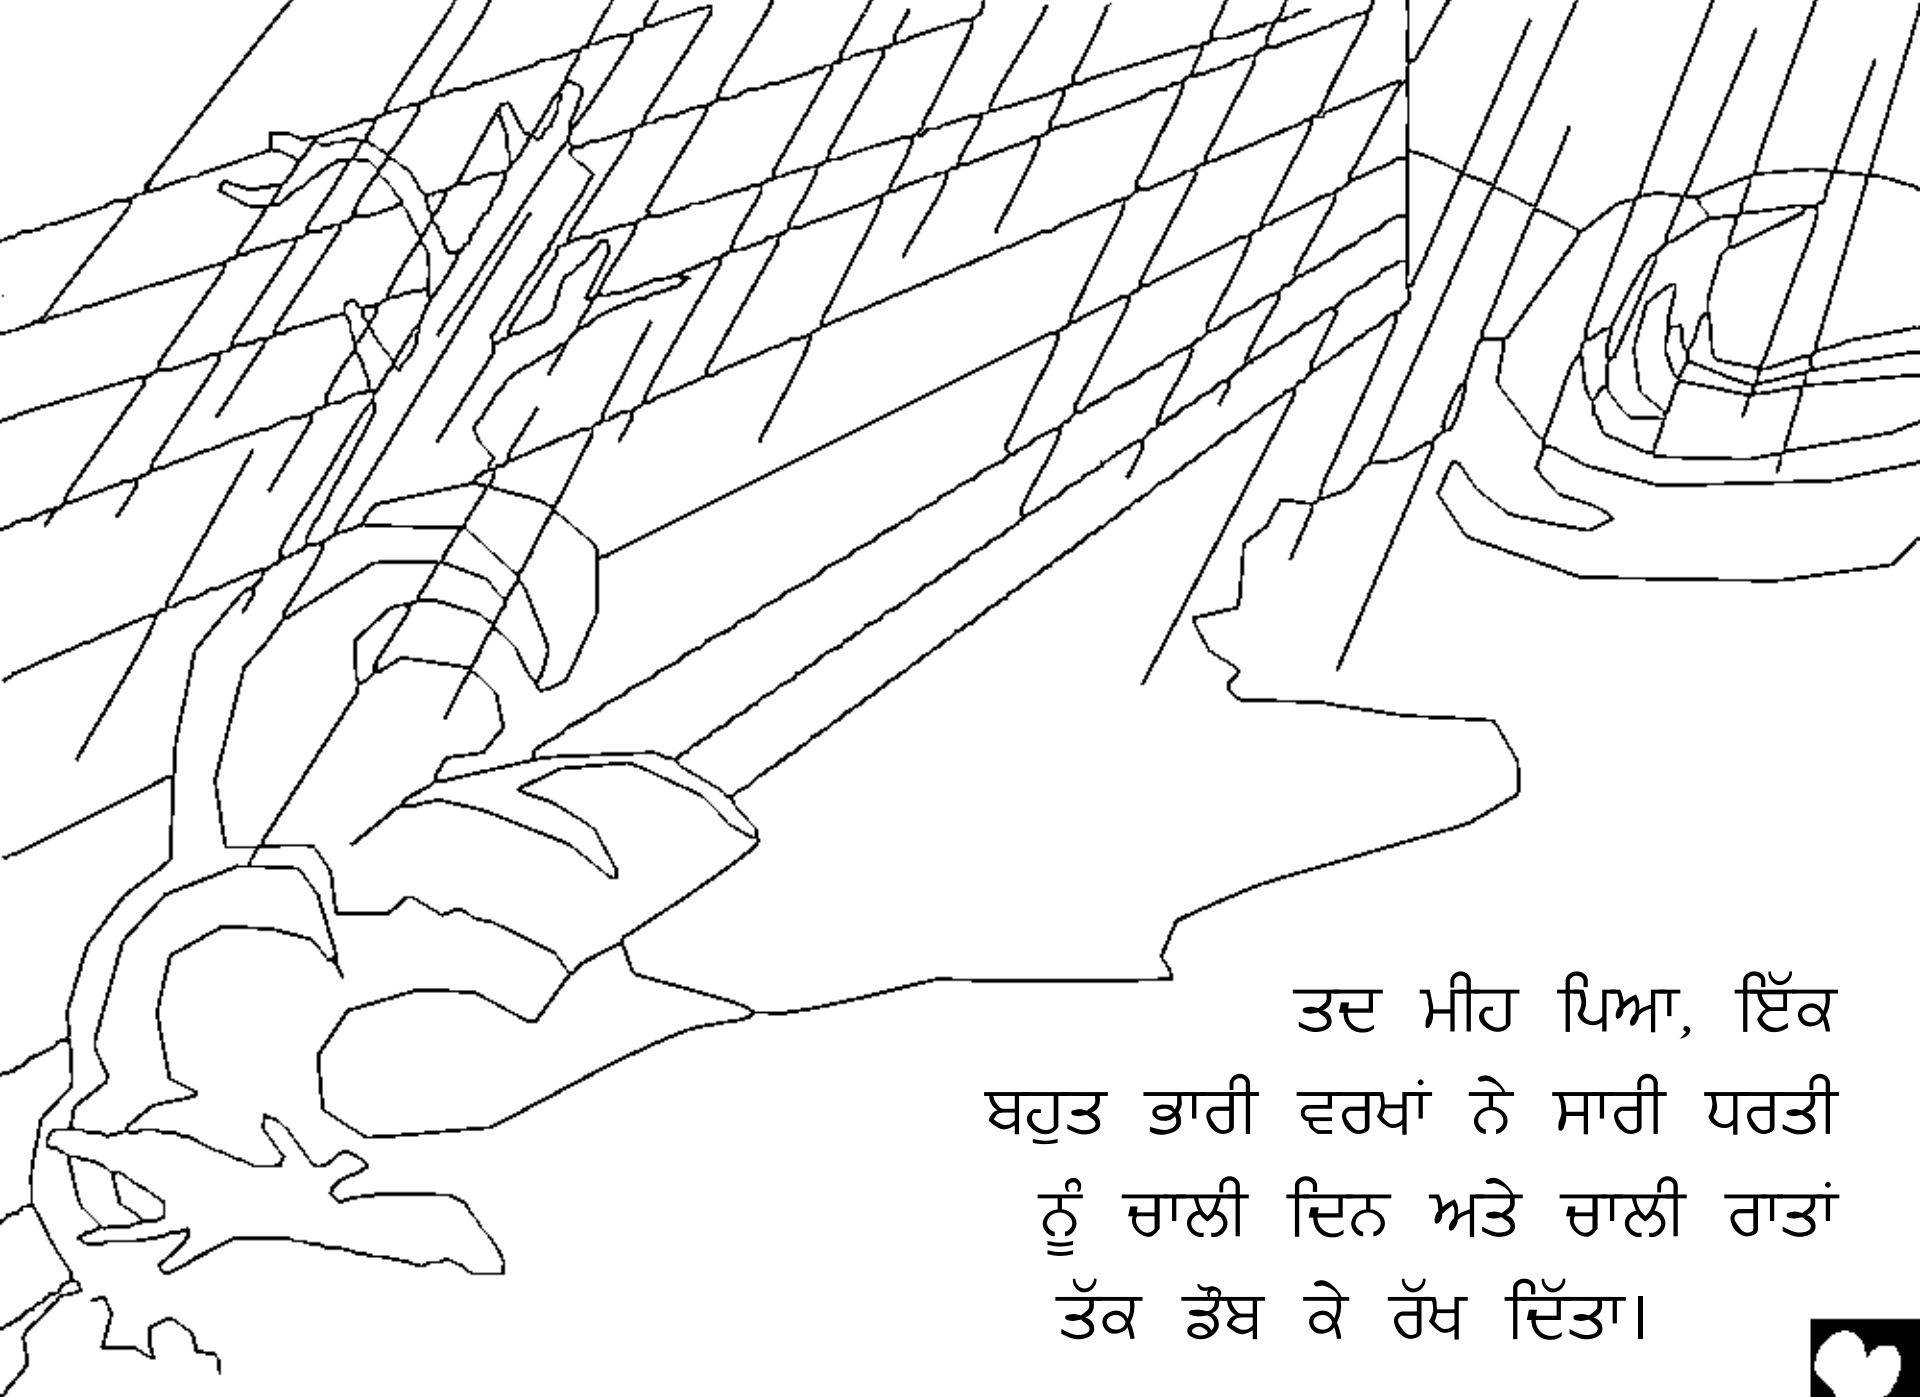 ਤਦ ਮੀਹ ਪਿਆ, ਇੱਕ
ਬਹੁਤ ਭਾਰੀ ਵਰਖਾਂ ਨੇ ਸਾਰੀ ਧਰਤੀ
ਨੂੰ ਚਾਲੀ ਦਿਨ ਅਤੇ ਚਾਲੀ ਰਾਤਾਂ
ਤੱਕ ਡੌਬ ਕੇ ਰੱਖ ਦਿੱਤਾ।